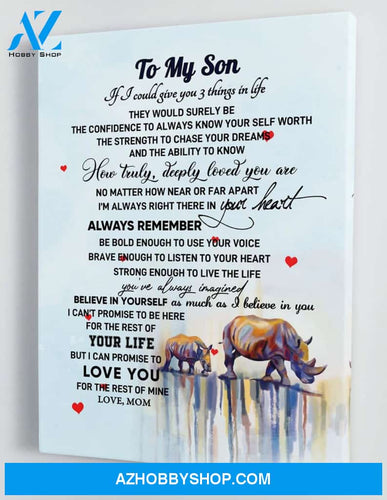 AZ
HOBBY SHOP
To My Son
If I could give you 3 things in life
THEY WOULD SURELY BE
THE CONFIDENCE TO ALWAYS KNOW YOUR SELF WORTH
THE STRENGTH TO CHASE YOUR DREAMS
AND THE ABILITY TO KNOW
How truly, deeply loved you are
NO MATTER HOW NEAR OR FAR APART
I'M ALWAYS RIGHT THERE IN your heart
ALWAYS REMEMBER
BE BOLD ENOUGH TO USE YOUR VOICE
BRAVE ENOUGH TO LISTEN TO YOUR HEART
STRONG ENOUGH TO LIVE THE LIFE
you've always imagined
BELIEVE IN YOURSELF as much as I believe in you
I CAN'T PROMISE TO BE HERE
FOR THE REST OF
YOUR LIFE
BUT I CAN PROMISE TO
LOVE YOU
FOR THE REST OF MINE
LOVE, MOM
AZHOBBYSHOP.COM